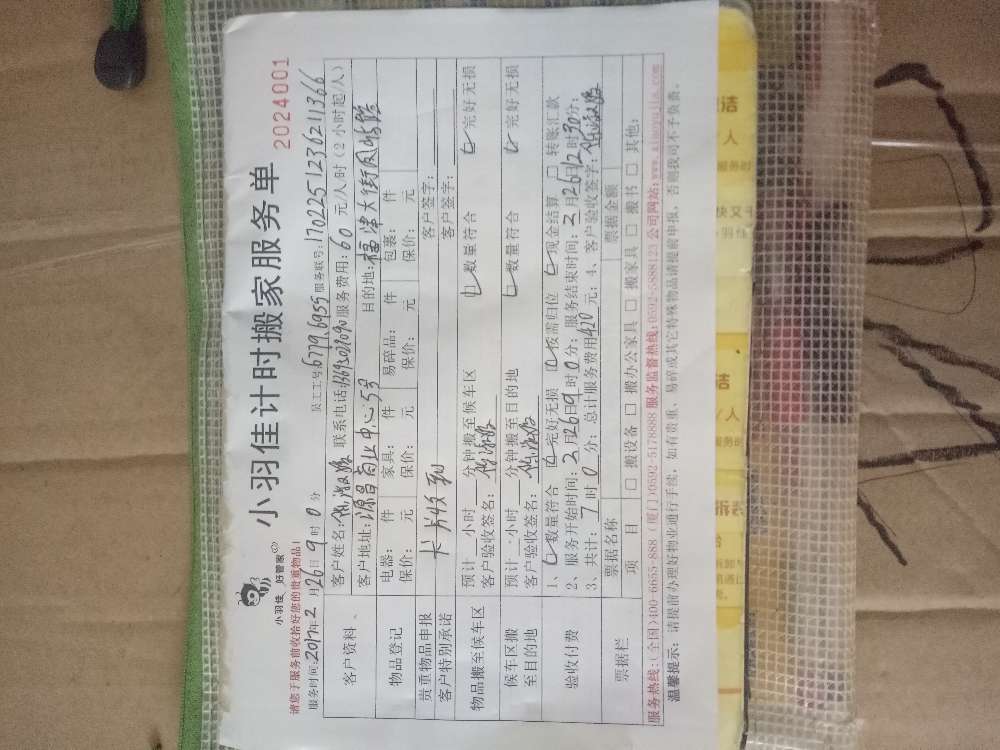 小羽佳 好管家
小羽佳计时搬家服务单
请您于服务前收拾好您的贵重物品!
2024001
服务时间:2017年2月26日9时0分 员工号:6779.6955 服务联号:1702251236211366
客户资料
客户姓名: 联系电话: 服务费用:60元/人/时(2小时起/人)
客户地址:源昌商业中心5号 目的地:福津大街
物品登记
电器: 件 家具: 件 易碎品: 件 包裹: 件
保价: 元 保价: 元 保价: 元 保价: 元
贵重物品申报 客户签字:
客户特别承诺 客户签字:
物品搬至候车区
预计 小时 分钟搬至候车区 数量符合 完好无损
客户验收签名:
候车区搬至目的地
预计 小时 分钟搬至目的地 数量符合 完好无损
客户验收签名:
验收付费
1、数量符合 完好无损 按需归位 现金结算 □ 转账汇款
2、服务开始时间:2月26日9时0分;服务结束时间:2月26日12时30分;
3、共计:7时0分;总计服务费用420元;4、客户验收签字:
票据栏
票据名称 票据金额
项 目 □ 搬设备 □ 搬办公家具 □ 搬家具 □ 搬书 □ 其他:
服务热线:(全国)400-6655-888 (厦门)0592-5178888 服务监督热线:0592-5888123 公司网站:www.xiaoyujia.com
温馨提示:请提前办理好物业通行手续,如有贵重、易碎或其它特殊物品请提前申报,否则我司不予负责。